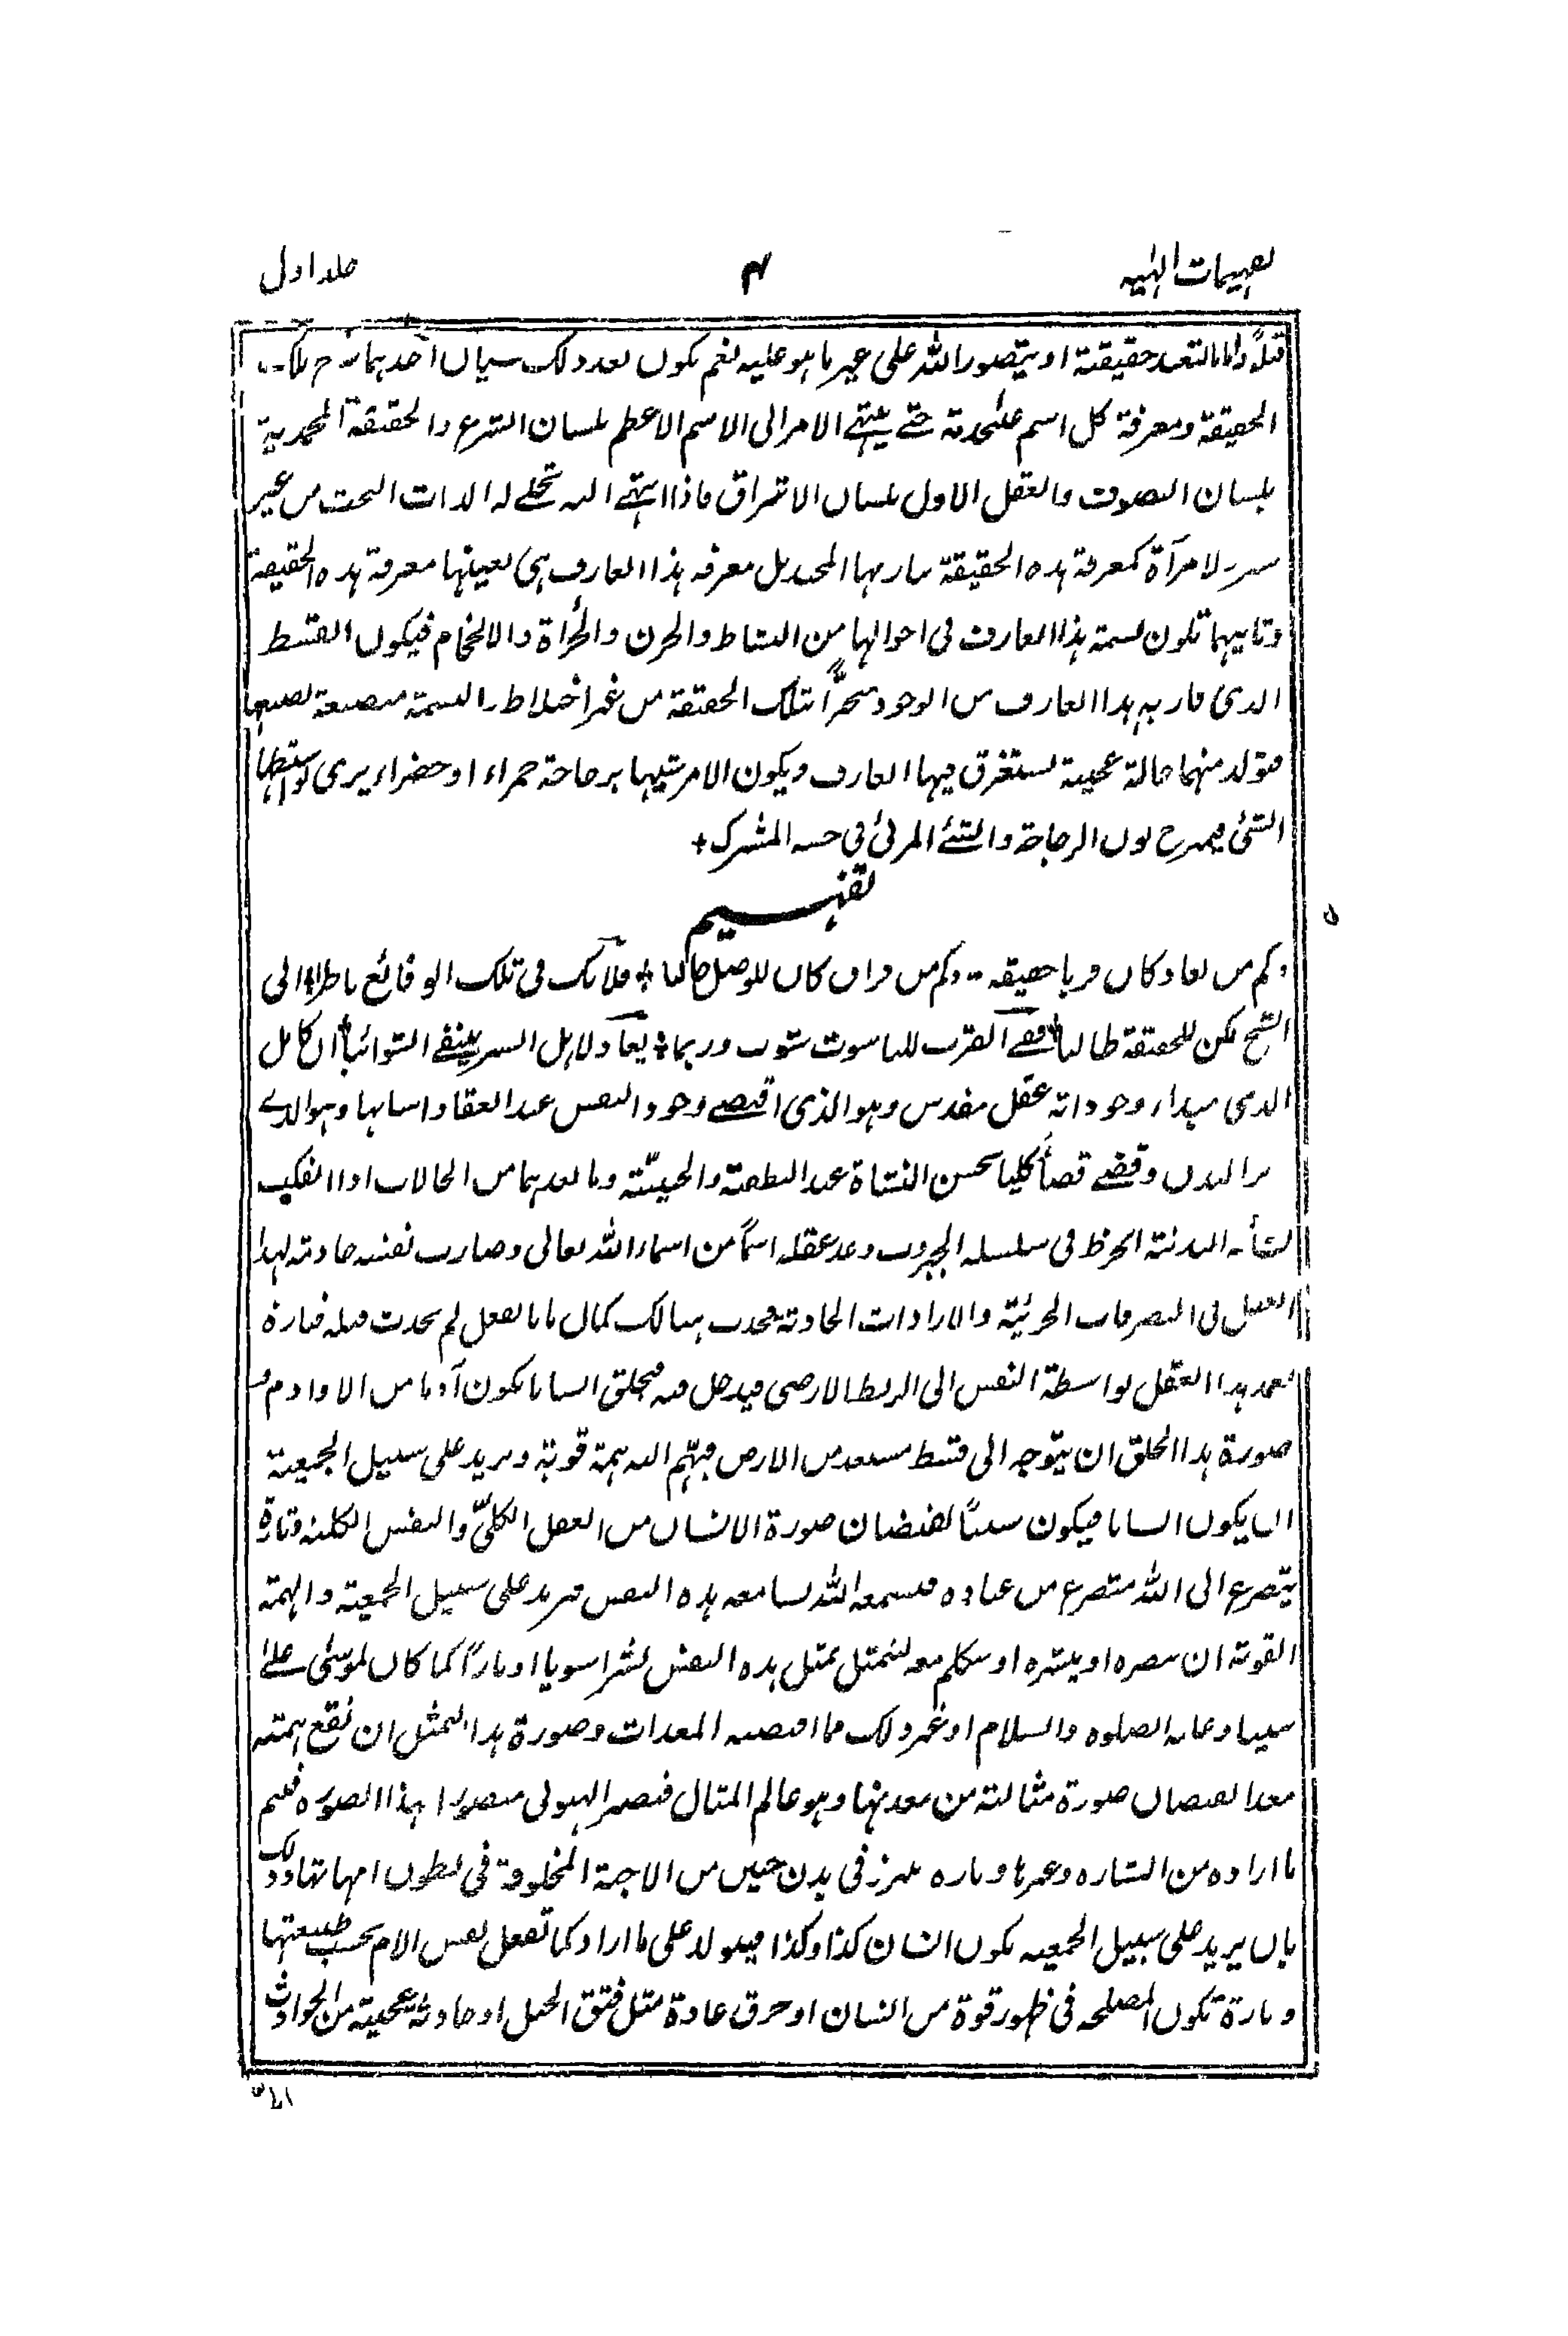 تفهيمات الهية ٤ جلد اول
حقيقة او يتصور الله على غير ما هو عليه نعم يكون بعد ذلك سيان احدهما
الحقيقة ومعرفة كل اسم علىحدته حتى ينتهى الامر الى الاسم الاعظم بلسان الشرع والحقيقة المحمدية
بلسان التصوف والعقل الاول بلسان الاشراق فاذا انتهى اليه تجلى له الذات البحت من غير
مرآة كمعرفة هذه الحقيقة بل معرفة هذا العارف هى بعينها معرفة هذه الحقيقة
وثانيهما تكون نسمة هذا العارف فى احوالها من النشاط والحزن والجرأة والانحجام فيكون القسط
الذى فاز به هذا العارف من الوجود تلك الحقيقة من غير اختلاط النسمة منصبغة بصبغها
فتولد منهما حالة عجيبة يستغرق فيها العارف ويكون الامر شبيها بزجاجة حمراء او خضراء يرى بواسطتها
الشئ فيمزج لون الزجاجة والشئ المرئى فى حسه المشترك +
تفهيم
وكم من بعاد كان قربا حقيقة وكم من فراق كان للوصل جالبا فلا تك فى تلك الوقائع ناظرا الى
الشبح كن للحقيقة طالبا ففى القرب للناسوت شوب وربما بعاد لاهل السر ينفى الشوائبا ان كامل
الذى مبداء وجوداته عقل مقدس وهو الذى اقتضى وجود النفس عند انعقاد اسبابها وهو الذى
البدن وقضى قضاء كليا بحسن النشاة عند النطفة والجنينية وما بعدهما من الحالات اذا انفكت
نشأته البدنية انخرط فى سلسلة الجبروت وعد عقله اسما من اسماء الله تعالى وصارت نفسه خادمة لهذا
العقل فى التصرفات الجزئية والارادات الحادثة فحدث هنالك كمال ما بالفعل لم يحدث قبله فتارة
يعمد هذا العقل بواسطة النفس الى الربط الارضى فيدخل فيه فيخلق انسانا يكون آدما من الاوادم و
صورة هذا الخلق ان يتوجه الى قسط مستعد من الارض فيهتم اليه بهمة قوية ويريد على سبيل الجمعية
ان يكون انسانا فيكون سببا لفيضان صورة الانسان من العقل الكلى والنفس الكلية وتارة
يتضرع الى الله متضرع من عباده فيسمعه الله بسامعه هذه النفس فيريد على سبيل الجمعية والهمة
القوية ان ينصره او يبشره او يتكلم معه فيتمثل بمثل هذه النفس بشرا سويا او نارا كما كان لموسى على
نبينا وعليه الصلوة والسلام او غير ذلك مما اقتضته المعدات وصورة هذا التمثل ان تقع همته
معدا لفيضان صورة مثالية من معدنها وهو عالم المثال فتصير الهيولى متصورا بهذا الصورة فيتم
ما اراده من البشارة وغيرها وتارة يبرز فى بدن جنين من الاجنة المخلوقة فى بطون امهاتها وذلك
بان يريد على سبيل الجمعية يكون انسان كذا وكذا فيتولد على ما اراد كما تفعل نفس الام بحسب طبيعتها
وتارة تكون المصلحة فى ظهور قوة من انسان او خرق عادة مثل فتق الجبل او حادثة عجيبة من الحوادث